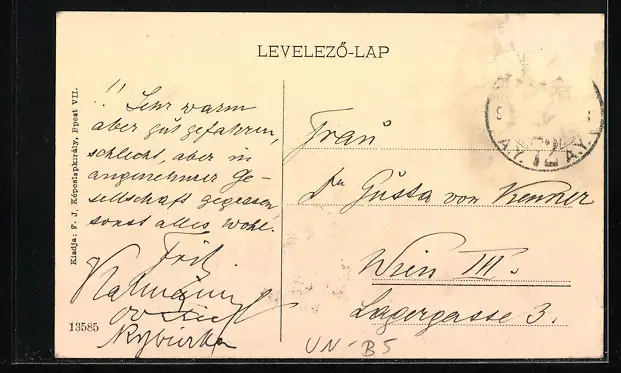 LEVELEZŐ-LAP
Kiadja: F. J. Képeslapkirály, Bpest VII.
!! Sehr warm
aber gut gefahren,
schlecht, aber in
angenehmer Ge-
sellschaft gegessen,
sonst alles wohl.
Fritz
13585
Frau
Gusta von
Wien III.
Lagergasse 3.
72
A.Y. A.Y.
UN-B5